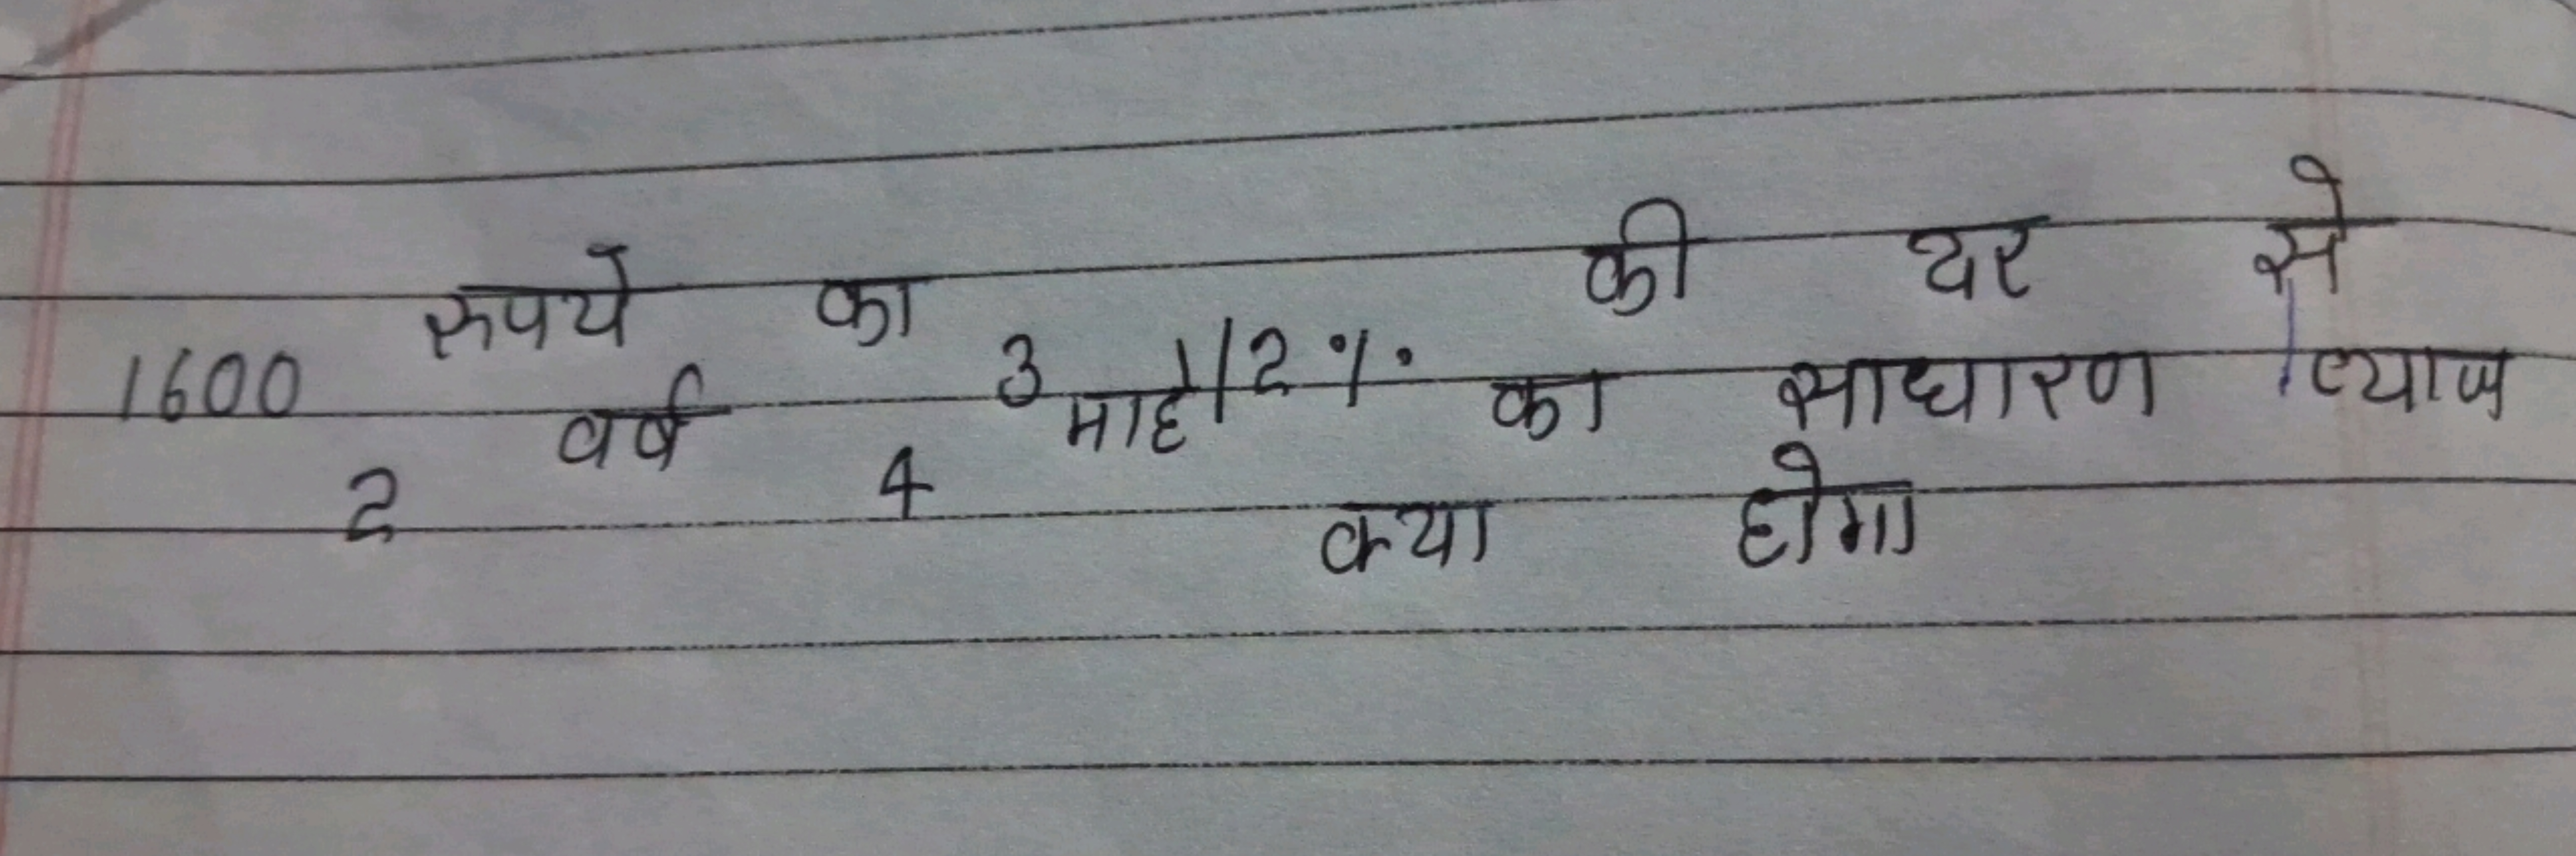 1600 रुपये का 3 1/2 % की दर से
2 वर्ष 4 माह का साधारण ब्याज
क्या होगा